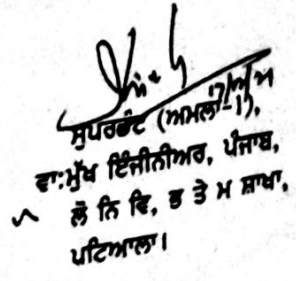 ਸੁਪਰਡੰਟ (ਅਮਲਾ-1),
ਵਾ:ਮੁੱਖ ਇੰਜੀਨੀਅਰ, ਪੰਜਾਬ,
ਲੋ ਨਿ ਵਿ, ਭ ਤੇ ਮ ਸ਼ਾਖਾ,
ਪਟਿਆਲਾ।